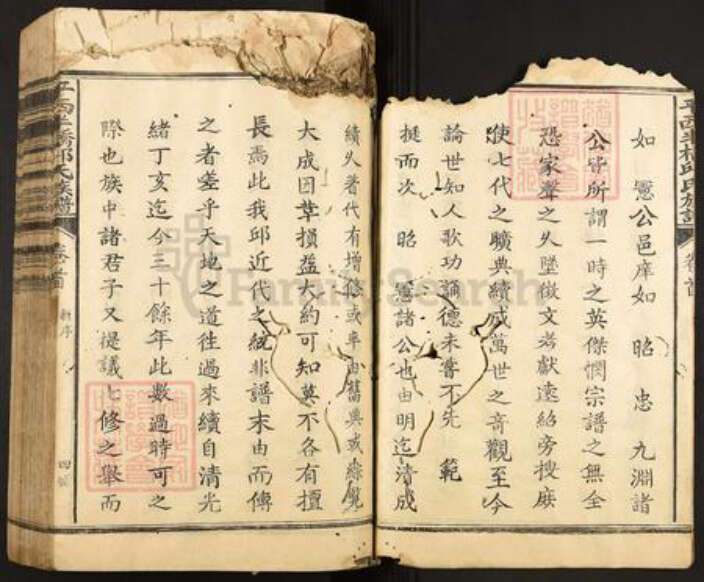 如　憲公邑庠如　昭　忠　九淵諸
公皆所謂一時之英傑憫宗譜之無全
恐家聲之久墜徵文考獻遠紹旁搜庶
使七代之曠典續成萬世之奇觀至今
論世知人歌功誦德未嘗不先　範
挺而次　昭　憲諸公也由明迄清成
續久著代有增修或率由舊典或
大成因草損益大約可知莫不各有擅
長焉此我邱近代之統非譜末由而傳
之者差乎天地之道往過來續自清光
緒丁亥迄今三十餘年此數過時可之
際也族中諸君子又提議七修之舉而
邱氏族譜
卷首
新序
四
FamilySearch